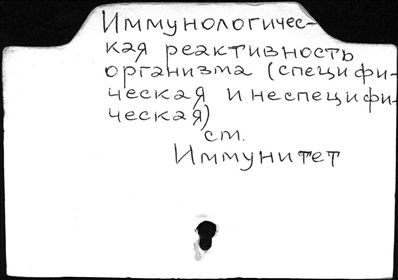 Иммунологичес-
кая реактивность
организма (специфи-
ческая и неспецифи-
ческая)
ст.
Иммунитет